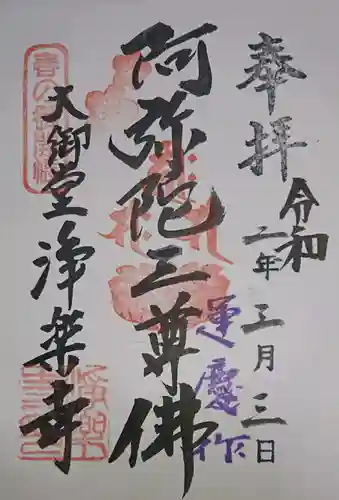 奉拝
令和二年三月三日
阿弥陀三尊佛
運慶作
大御堂浄楽寺